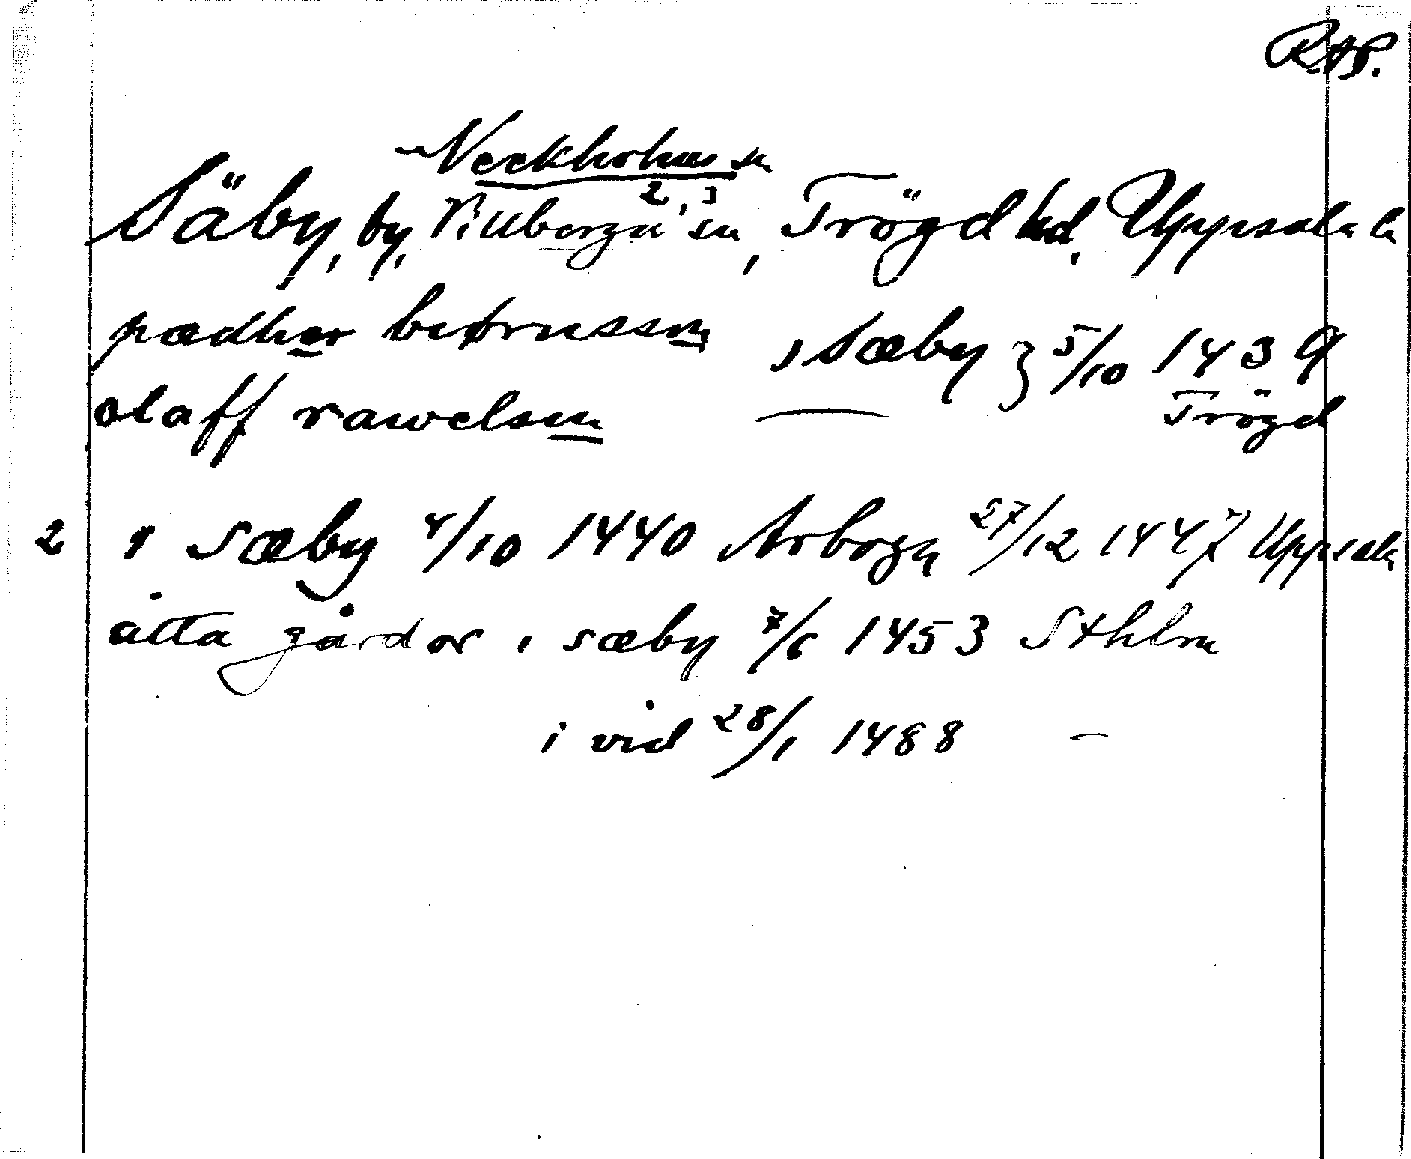 RAP.
Veckholms sn
2, 3
Säby, by, Villberga sn, Trögd hd, Uppsala la
pædher biørnsson i Sæby } 5/10 1439
olaff rawelsson — Trögd
2 i sæby 4/10 1440 Arboga 27/12 1447 Uppsala
åtta gårdar i sæby 7/6 1453 Sthlm
i vid 28/1 1488 —